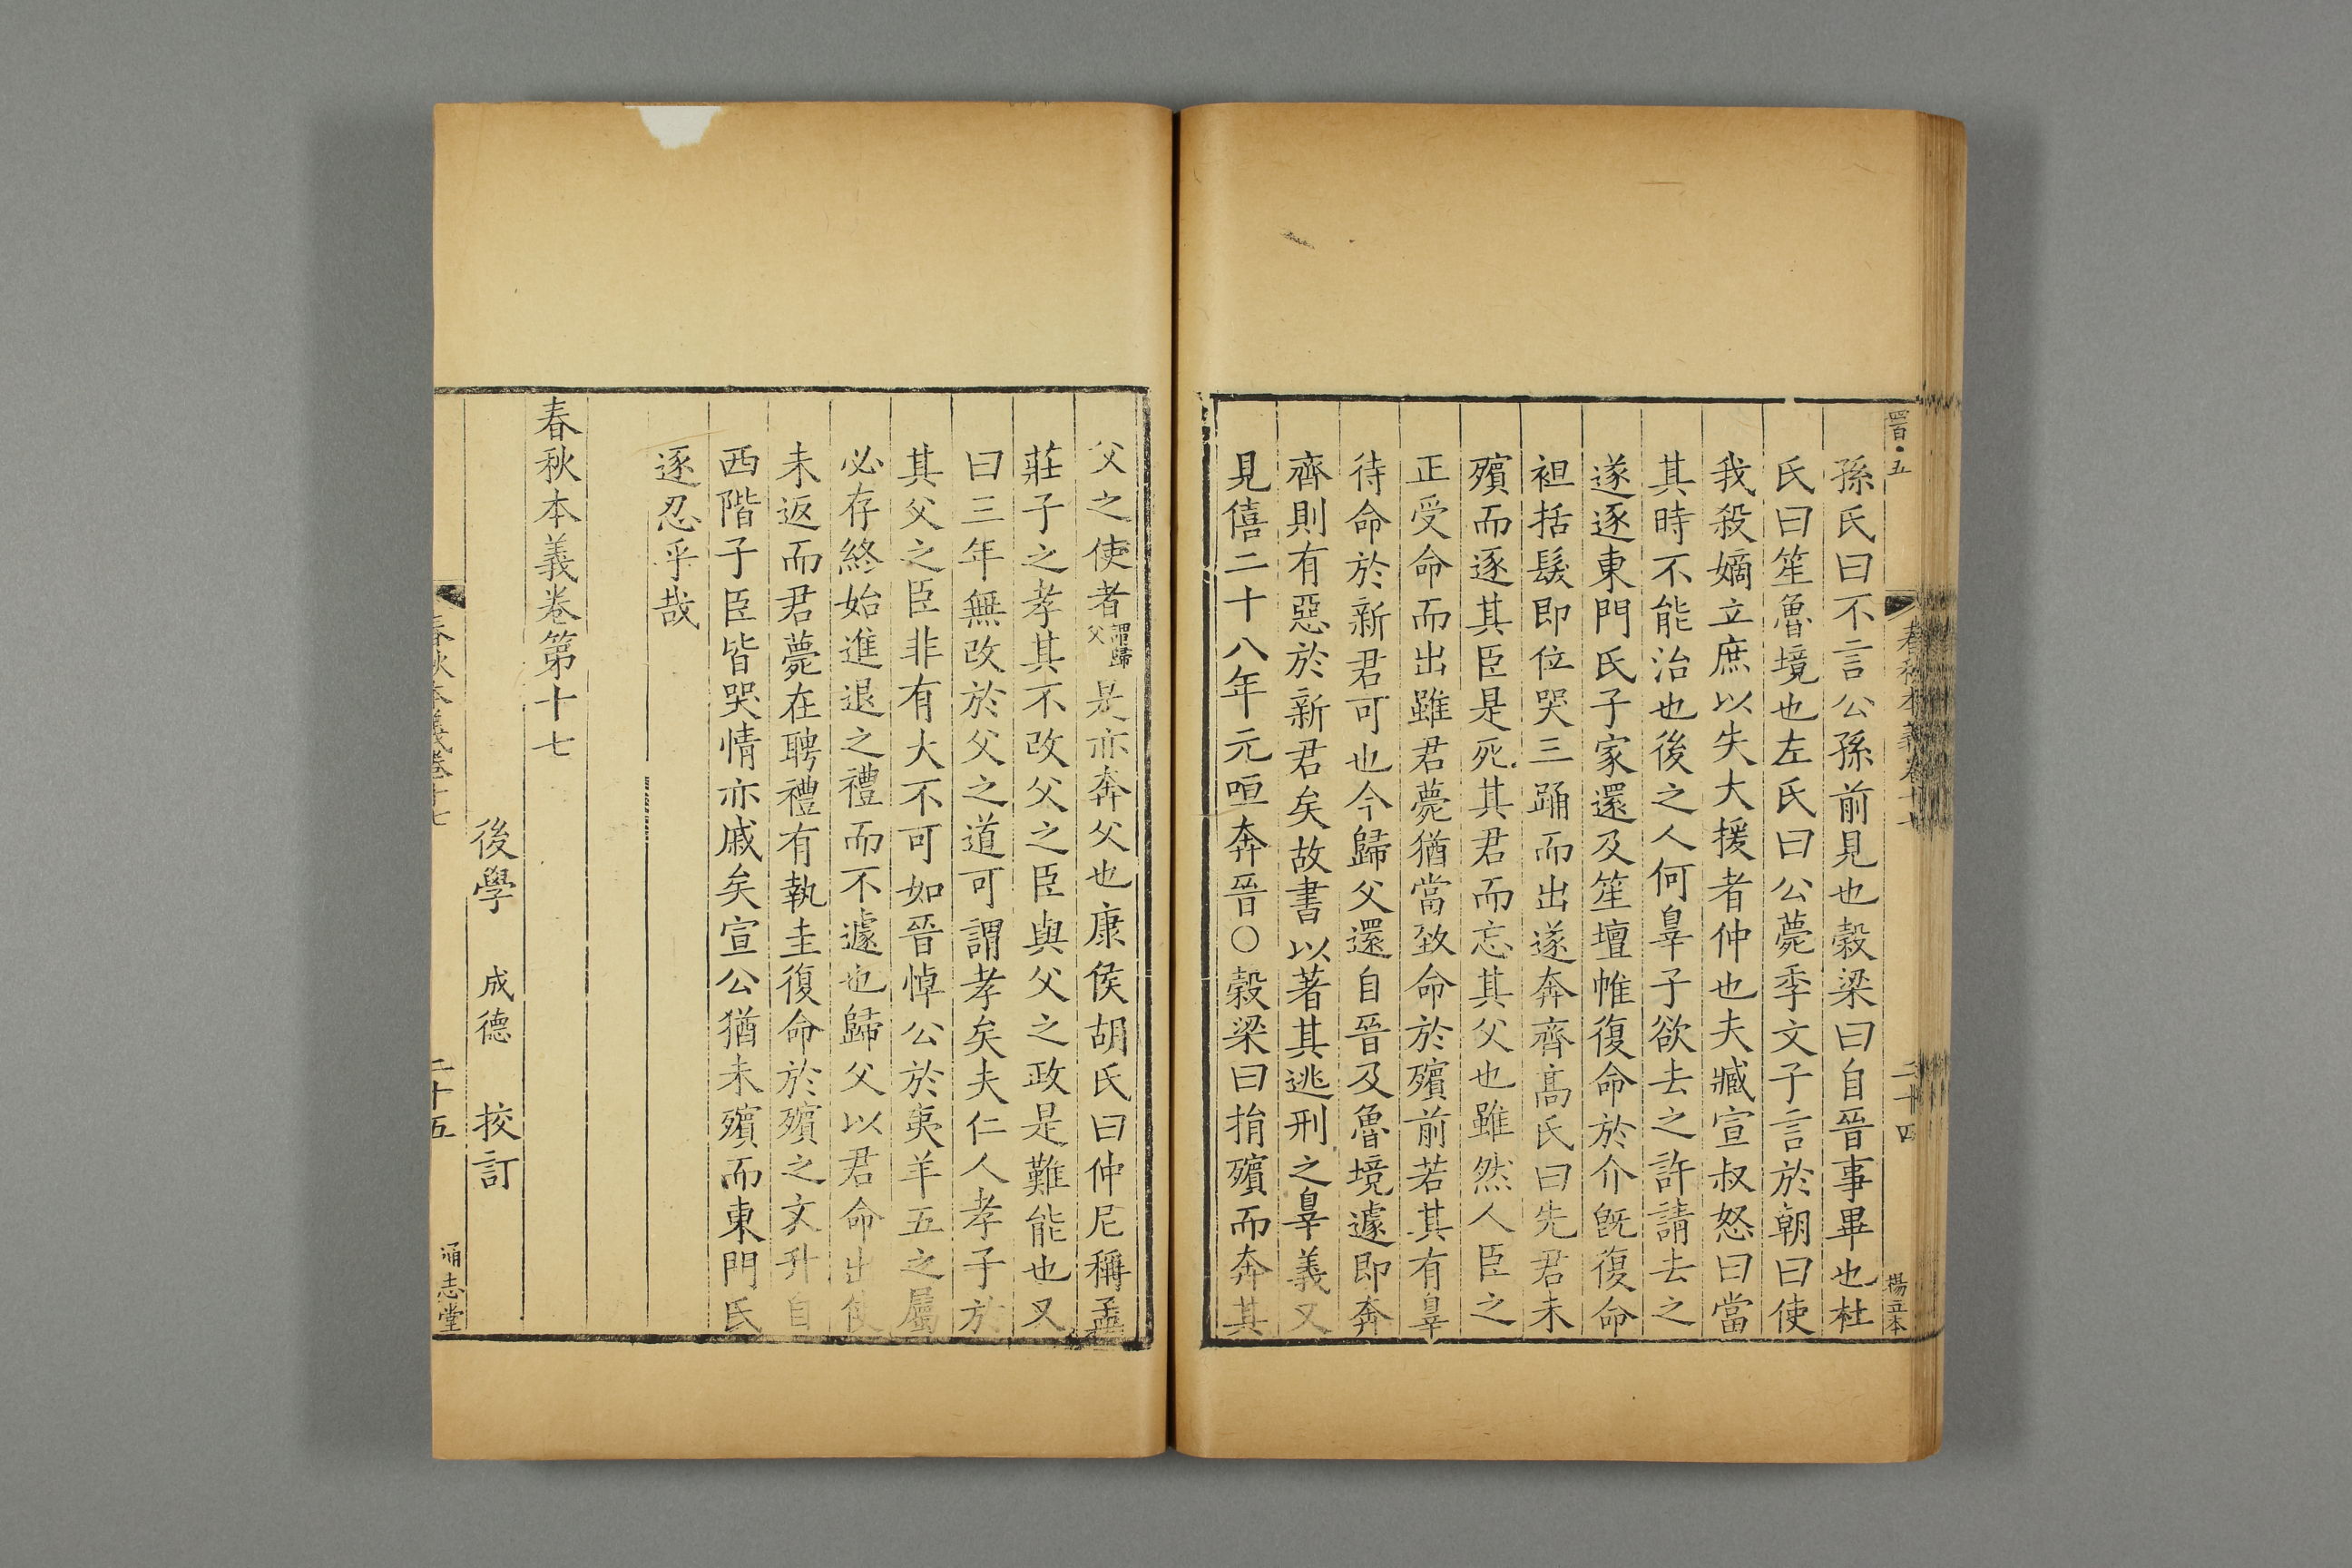 孫氏曰不言公孫前見也榖梁曰自晉事畢也杜
氏曰笙魯境也左氏曰公薨季文子言於朝曰使
我殺嫡立庶以失大援者仲也夫臧宣叔怒曰當
其時不能治也後之人何辠子欲去之許請去之
遂逐東門氏子家還及笙壇帷復命於介旣復命
袒括髮即位哭三踊而出遂奔齊髙氏曰先君未
殯而逐其臣是死其君而忘其父也雖然人臣之
正受命而出雖君薨猶當致命於殯前若其有辠
待命於新君可也今歸父還自晉及魯境遽即奔
齊則有惡於新君矣故書以著其逃刑之辠義又
見僖二十八年元咺奔晉○榖梁曰捐殯而奔其
父之使者謂歸父是亦奔父也康侯胡氏曰仲尼稱孟
莊子之孝其不改父之臣與父之政是難能也又
曰三年無改於父之道可謂孝矣夫仁人孝子於
其父之臣非有大不可如晉悼公於夷羊五之屬
必存終始進退之禮而不遽也歸父以君命出使
未返而君薨在聘禮有執圭復命於殯之文升自
西階子臣皆哭情亦戚矣宣公猶未殯而東門氏
逐忍乎哉
春秋本義卷第十七
後學 成德 挍訂
春秋本義卷十七
二十五
通志堂